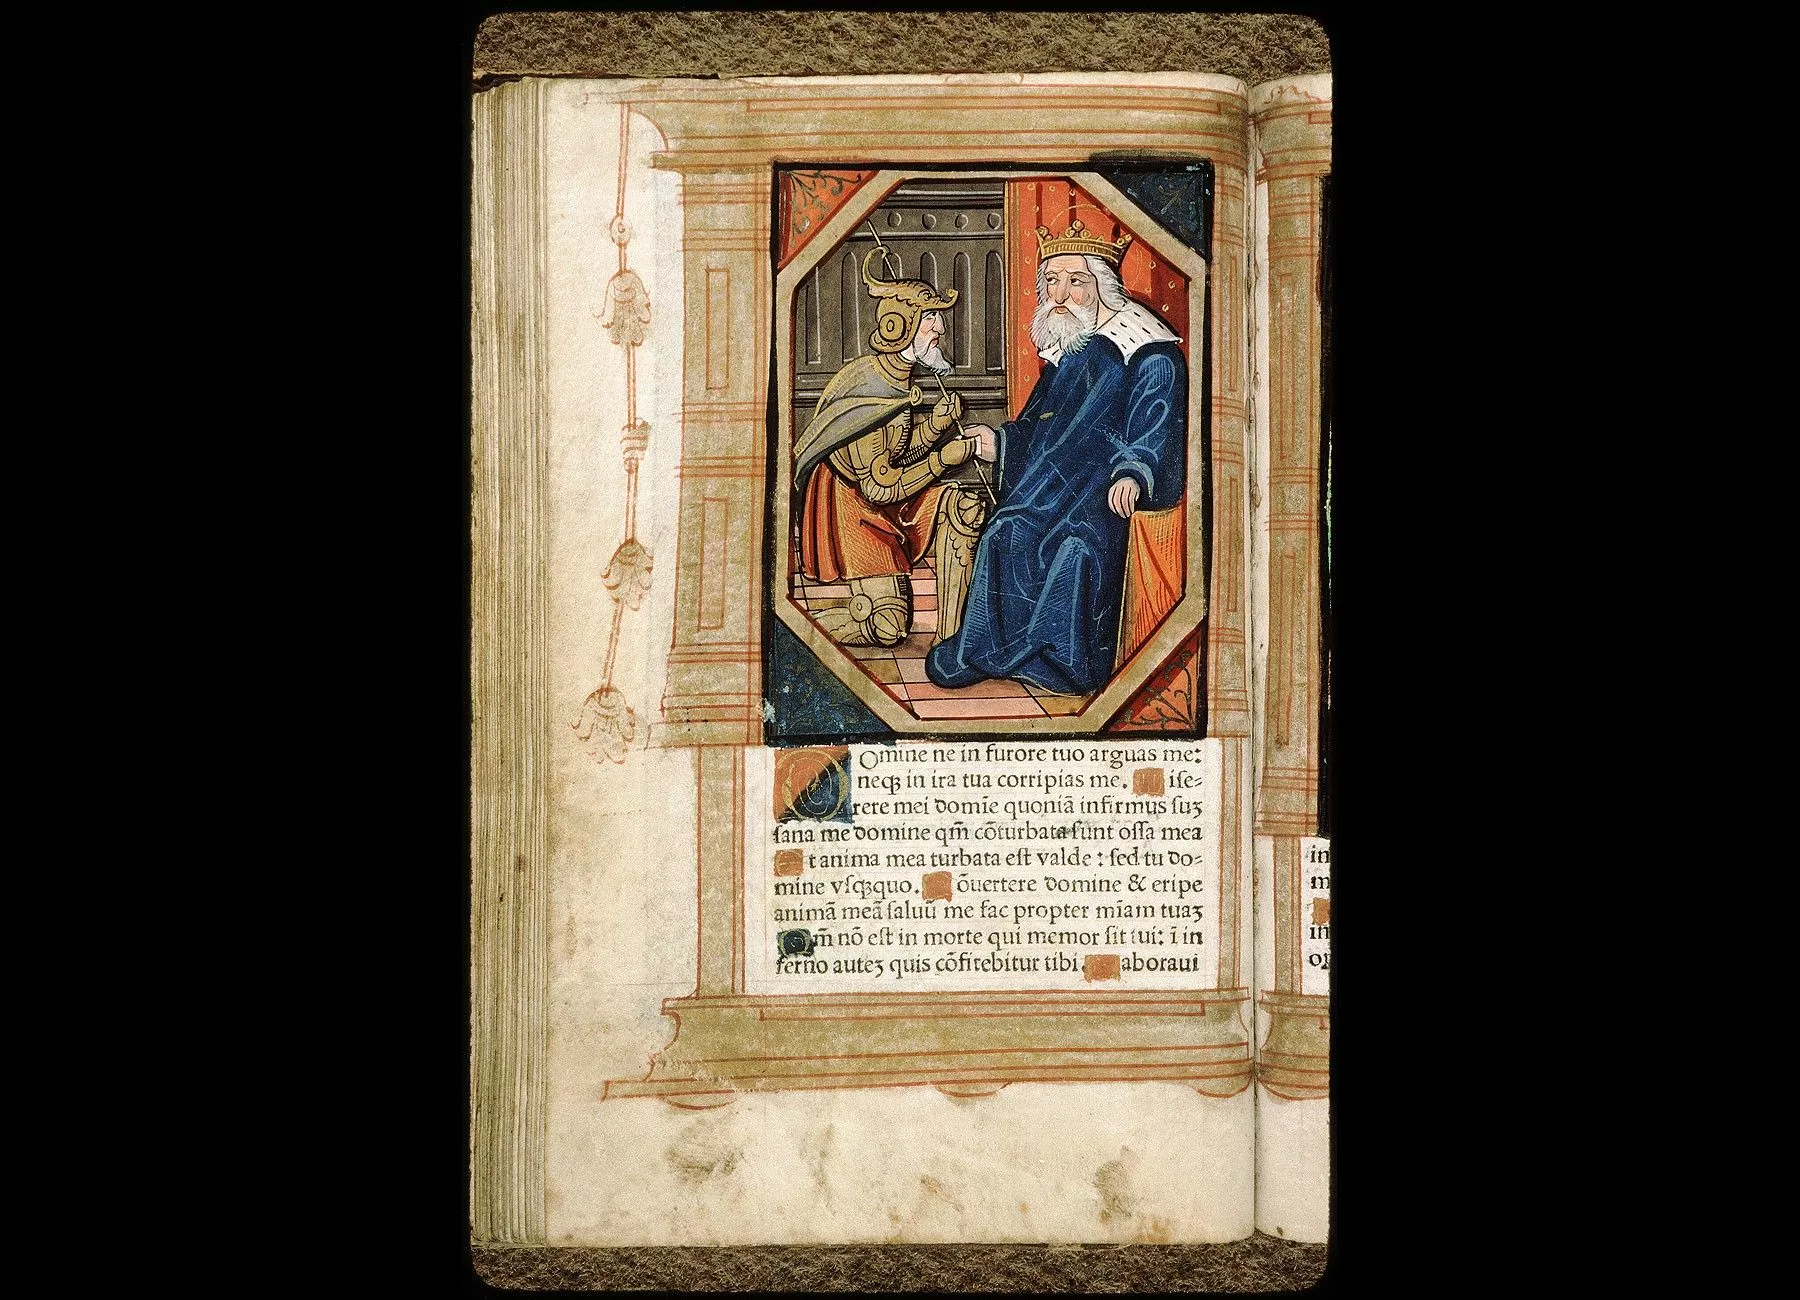 Omine ne in furore tuo arguas me:
neqꝫ in ira tua corripias me. ise⸗
rere mei domīe quoniā infirmus suꝫ
sana me domine qm̄ cōturbata sunt ossa mea
t anima mea turbata est valde : sed tu do⸗
mine vsqꝫquo. ōuertere domine & eripe
animā meā saluū me fac propter mīam tuaꝫ
m̄ nō est in morte qui memor sit tui: ī in
ferno auteꝫ quis cōfitebitur tibi. aboraui
in
m
in